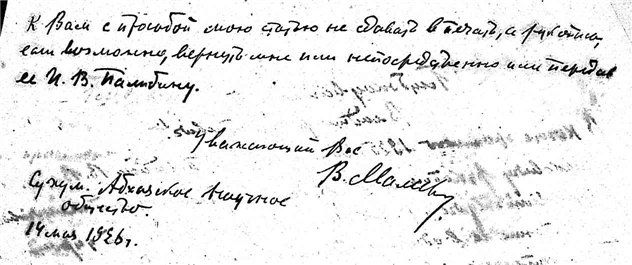 к Вам с просьбой мою статью не сдавать в печать, а рукопись,
если возможно, вернуть мне или непосредственно или передав
ее И. В. Палибину.
Уважающий Вас
В. Малеев
Сухум. Абхазское научное
общество.
14 мая 1926 г.